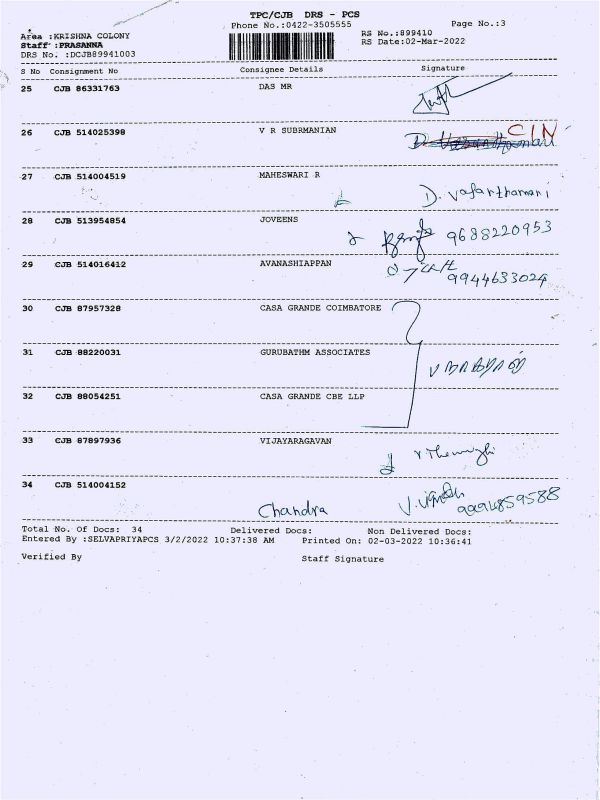 TPC/CJB DRS - PCS
Phone No.:0422-3505555
Page No.:3
Area :KRISHNA COLONY
RS No.:899410
Staff :PRASANNA
RS Date:02-Mar-2022
DRS No. :DCJB89941003
S No Consignment No Consignee Details Signature
25 CJB 86331763 DAS MR
26 CJB 514025398 V R SUBRMANIAN
CIN
27 CJB 514004519 MAHESWARI R
28 CJB 513954854 JOVEENS
9688220953
29 CJB 514016412 AVANASHIAPPAN
9944633024
30 CJB 87957328 CASA GRANDE COIMBATORE
31 CJB 88220031 GURUBATHM ASSOCIATES
32 CJB 88054251 CASA GRANDE CBE LLP
33 CJB 87897936 VIJAYARAGAVAN
34 CJB 514004152
Chandra
9994859588
Total No. Of Docs: 34 Delivered Docs: Non Delivered Docs:
Entered By :SELVAPRIYAPCS 3/2/2022 10:37:38 AM Printed On: 02-03-2022 10:36:41
Verified By Staff Signature